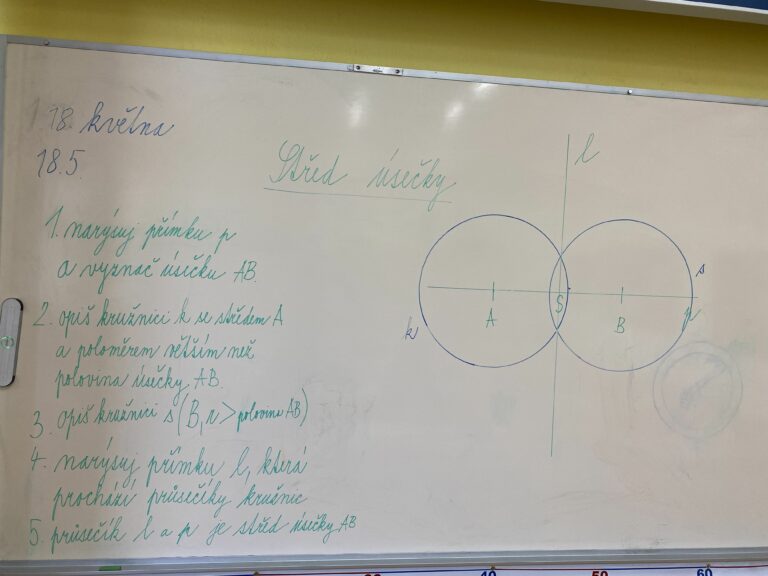 18. května
18.5.
Střed úsečky
1. narýsuj přímku p
a vyznač úsečku AB.
2. opiš kružnici k se středem A
a poloměrem větším než
polovina úsečky AB.
3. opiš kružnici s (B, r > polovina AB)
4. narýsuj přímku l, která
prochází průsečíky kružnic
5. průsečík l a p je střed úsečky AB
l
s
A
S
B
p
k
40
50
60